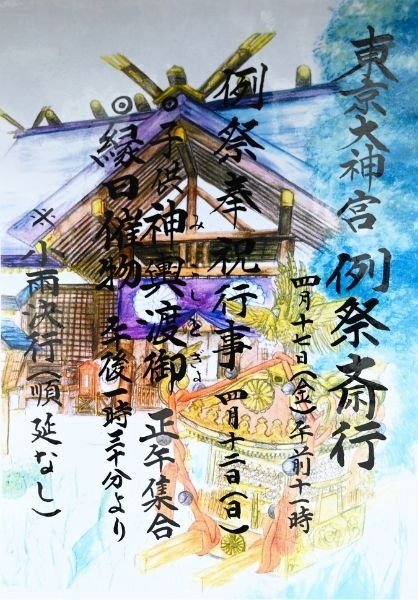 東京大神宮 例祭斎行
四月十七日(金)午前十一時
例祭奉祝行事 四月十二日(日)
◎子供神輿渡御 正午集合
みこしとぎょ
◎縁日催物 午後一時三十分より
※小雨決行(順延なし)